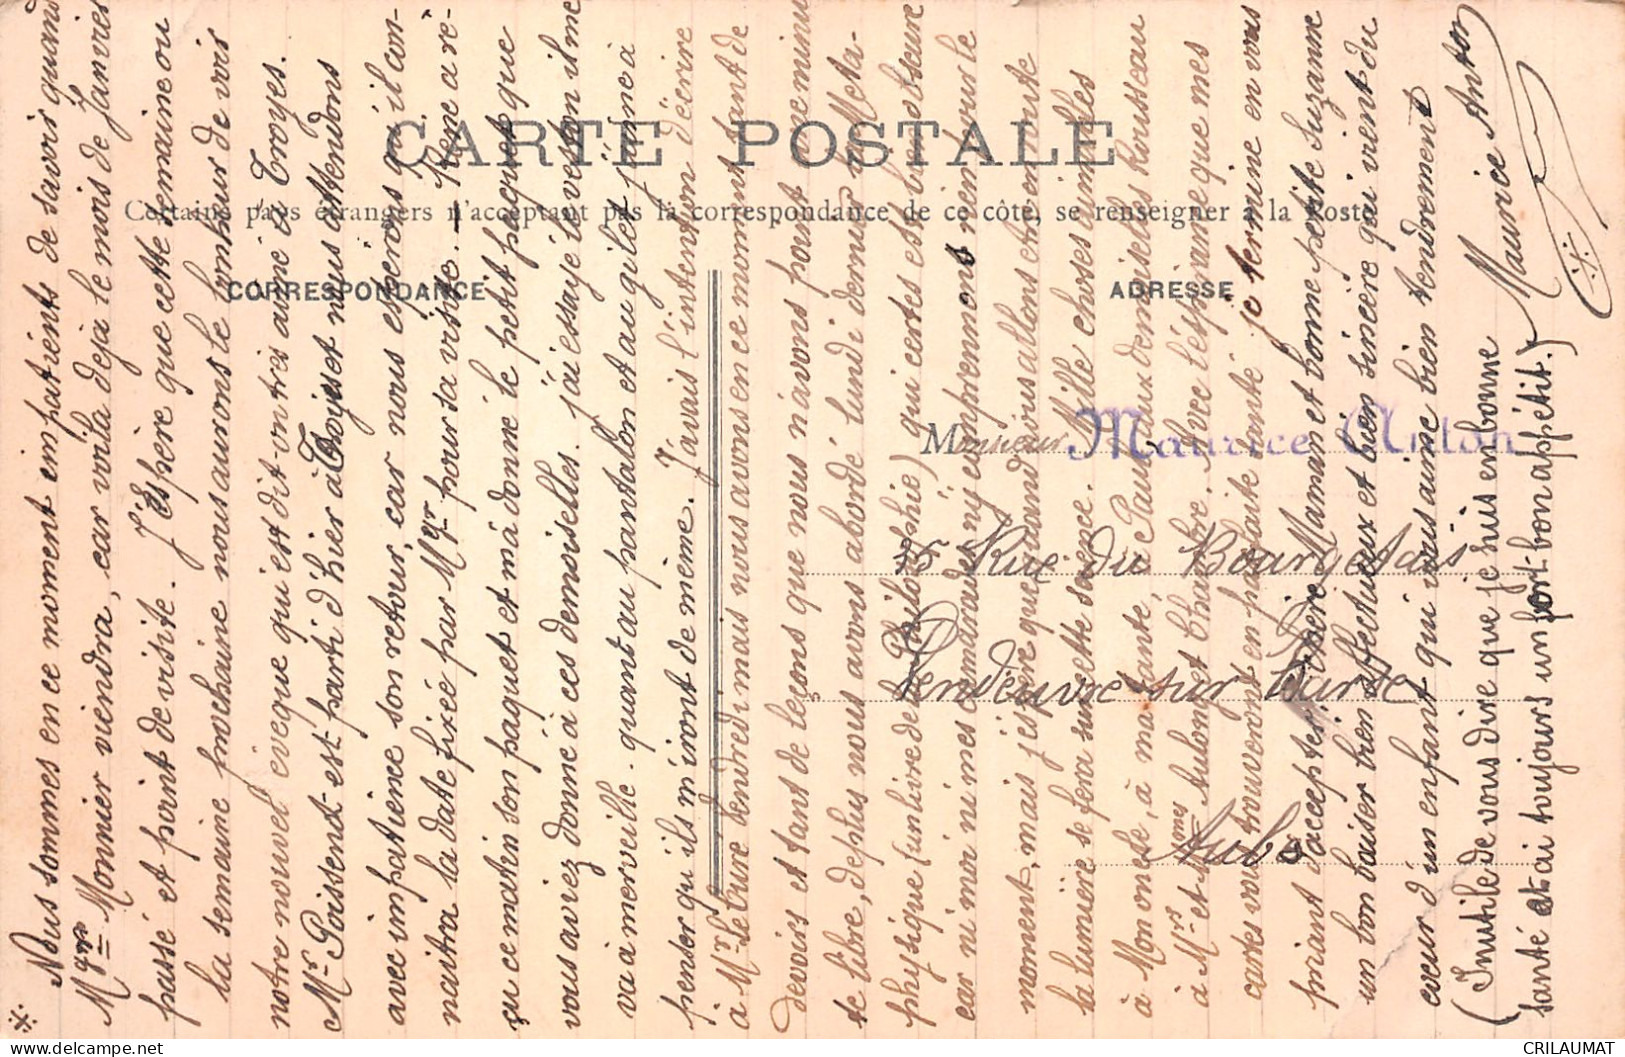 CARTE POSTALE
Certains pays étrangers n'acceptant pas la correspondance de ce côté, se renseigner à la Poste
CORRESPONDANCE
ADRESSE
Monsieur Maurice Anton
Rue du Bourgelais
Vendeuvre-sur-Barse
Aube
Nous sommes en ce moment impatients de savoir quand
Mgneur Monnier viendra, car voilà déjà le mois de Janvier
passé et point de visite. J'Espère que cette semaine ou
la semaine prochaine nous aurons le bonheur de voir
notre nouvel évêque qui est dit-on très aimé à Troyes.
Mr Poissent est parti d'hier à Choiset nous attendons
avec impatience son retour, car nous espérons qu'il con-
naitra la date fixée par Mgr pour sa visite. - René a re-
çu ce matin son paquet et m'a donné le petit paquet que
vous aviez donné à ces demoiselles. j'ai essayé le veston il me
va à merveille. quant au pantalon et au gilet j'aime à
penser qu'ils m'iront de même. J'avais l'intention d'écrire
à Mr Lebrure vendredi mais nous avons en ce moment tant de
devoirs et tant de leçons que nous n'avons point une minu
te libre, de plus nous avons abordé lundi dernier la Méta-
physique (un livre de Philosophie) qui certes est bien obscure
car ni moi ni mes camarades n'y comprenons rien pour le
moment, mais j'espère que quand nous allons être en route
la lumière se fera sur cette science. Mille choses aimables
à Mon oncle, à ma tante, à Paul, aux demoiselles Rousseau
à Mrs et Mmes Aulon et Chambre. Avec l'espérance que mes
cartes vous trouveront en parfaite santé je termine en vous
priant d'accepter, Père, Maman et bonne petite Suzanne
un bon baiser bien affectueux et bien sincère qui vient du
cœur d'un enfant qui vous aime bien tendrement
Maurice Anton
(Inutile de vous dire que je suis en bonne
santé et ai toujours un fort bon appétit.)
CRILAUMAT